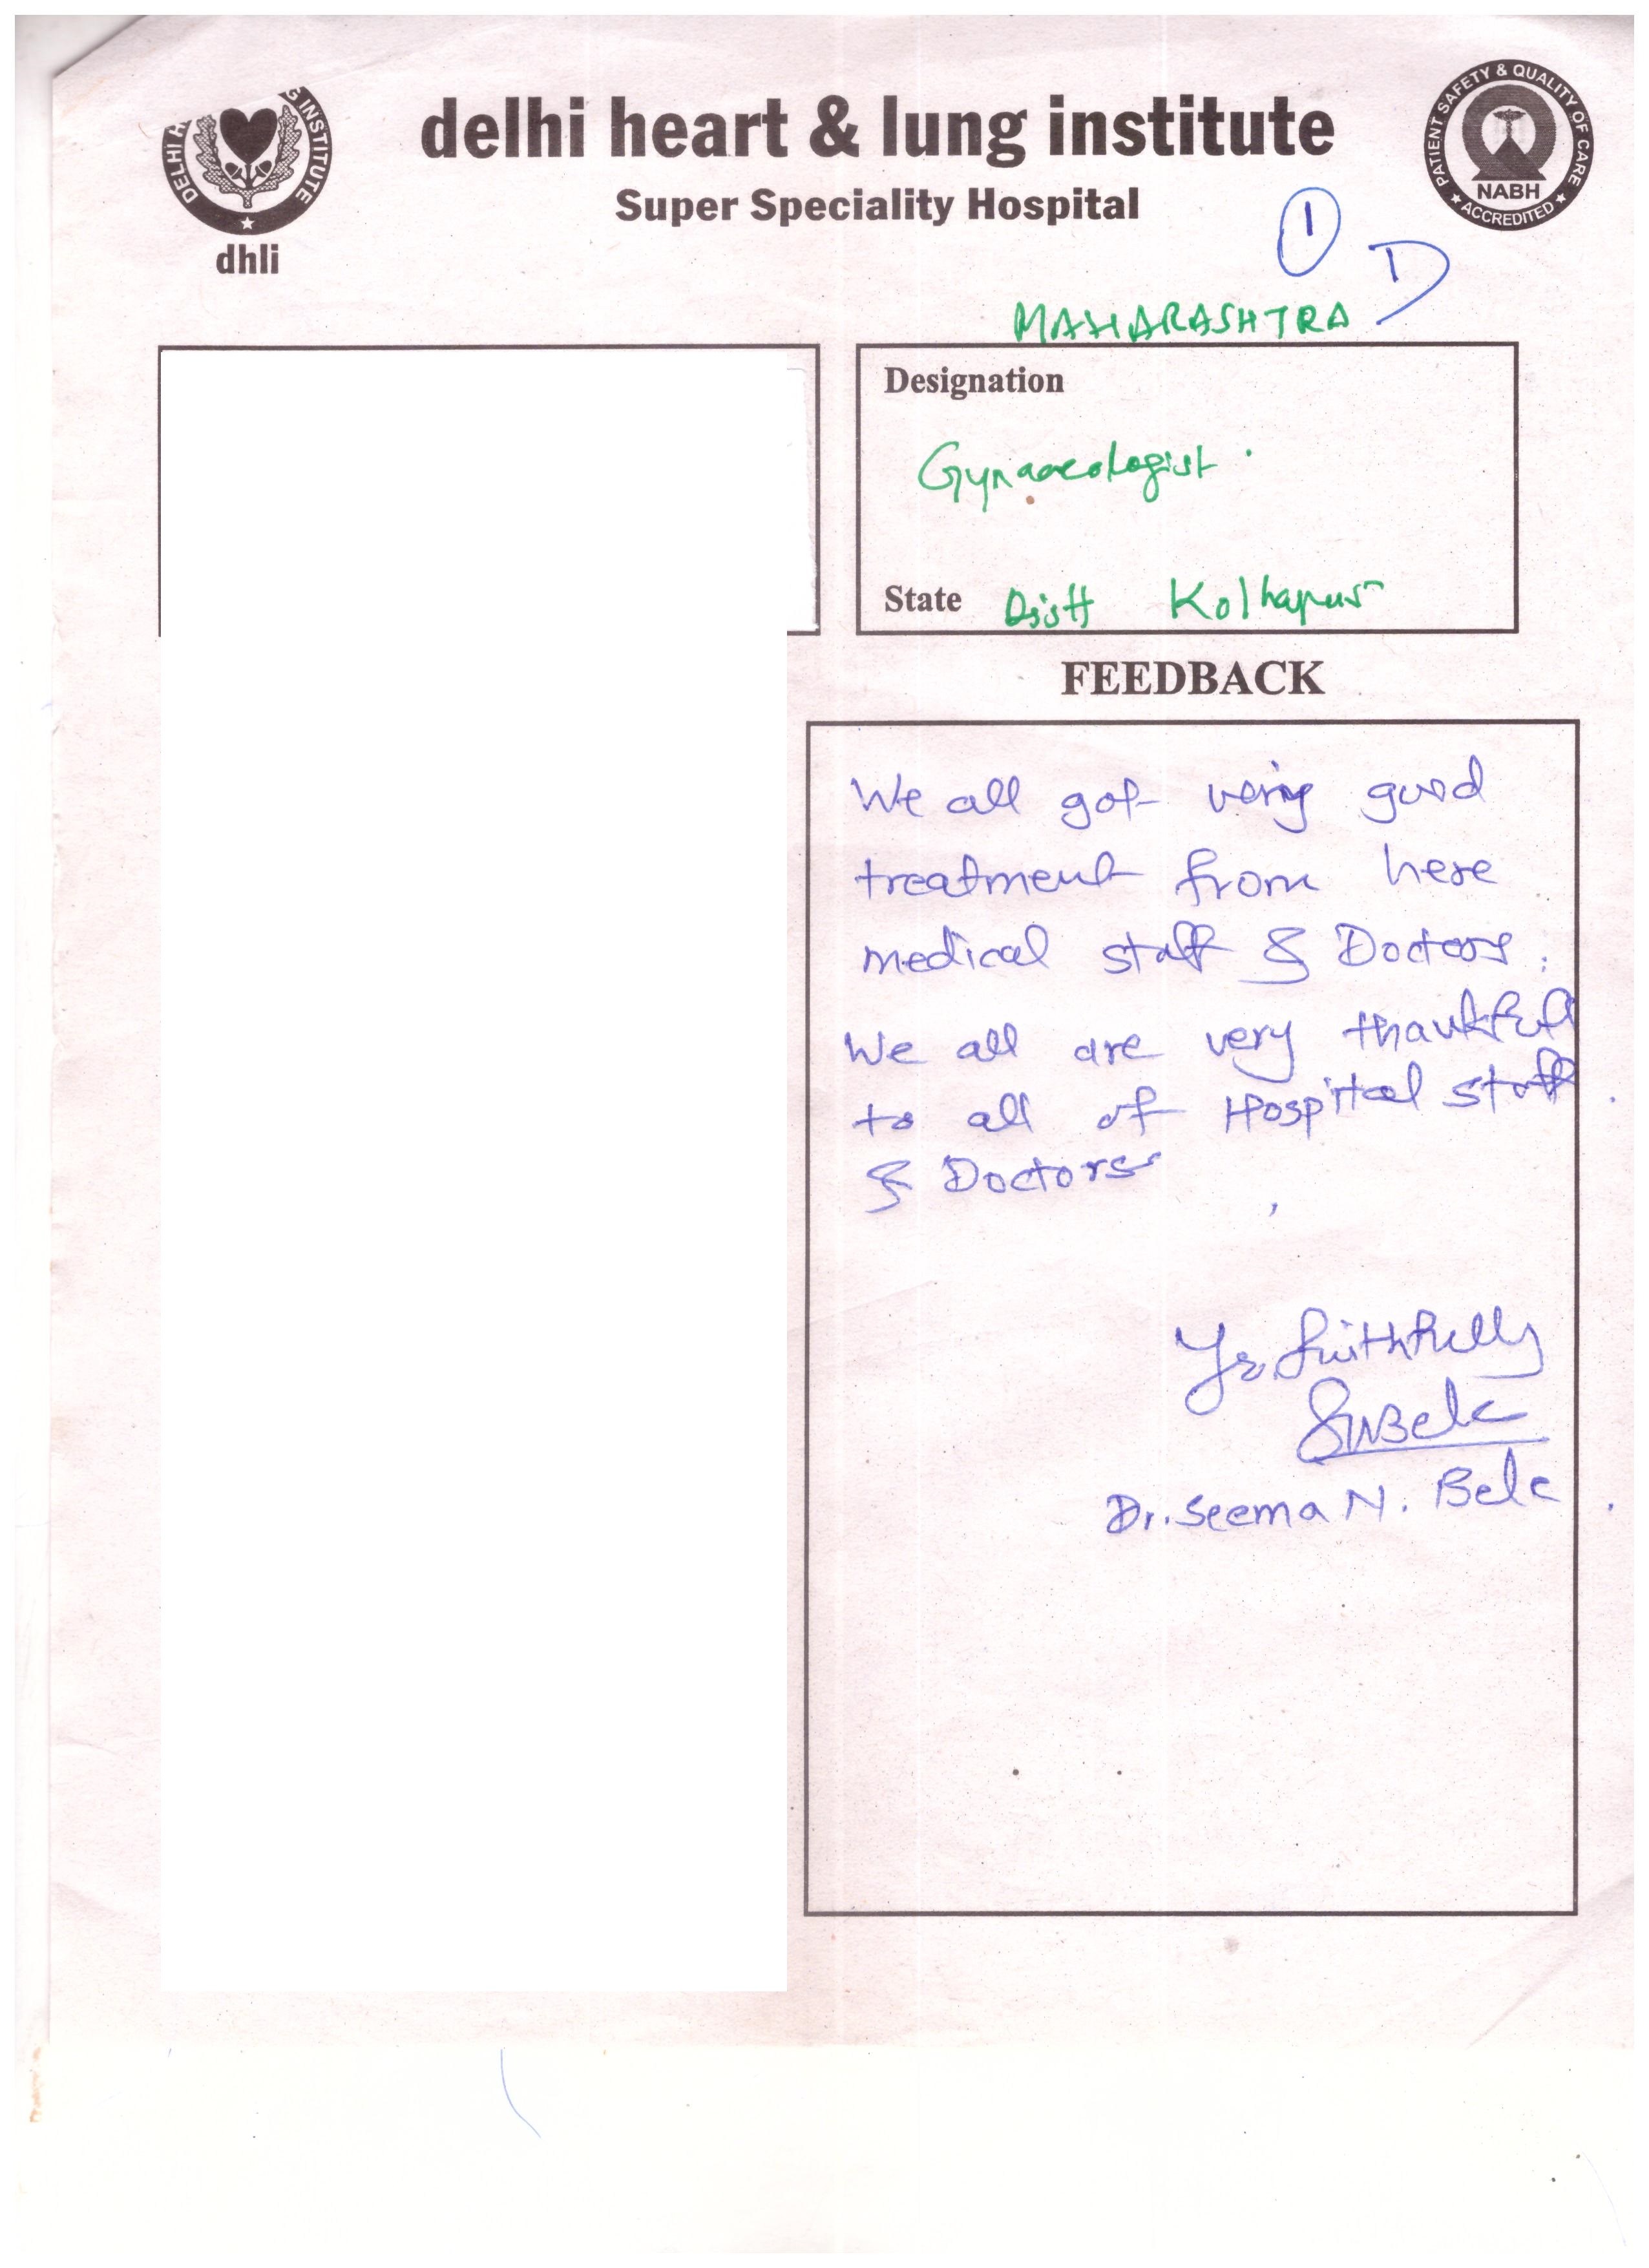 DELHI H G INSTITUTE
dhli
delhi heart & lung institute
Super Speciality Hospital
PATIENT SAFETY & QUALITY OF CARE
NABH
ACCREDITED
1
D
MAHARASHTRA
Designation
Gynaecologist
State Distt Kolhapur
FEEDBACK
We all got very good
treatment from here
medical staff & Doctors.
We all are very thankful
to all of Hospital staff
& Doctors
Yrs. faithfully
SNBele
Dr. Seema N. Bele